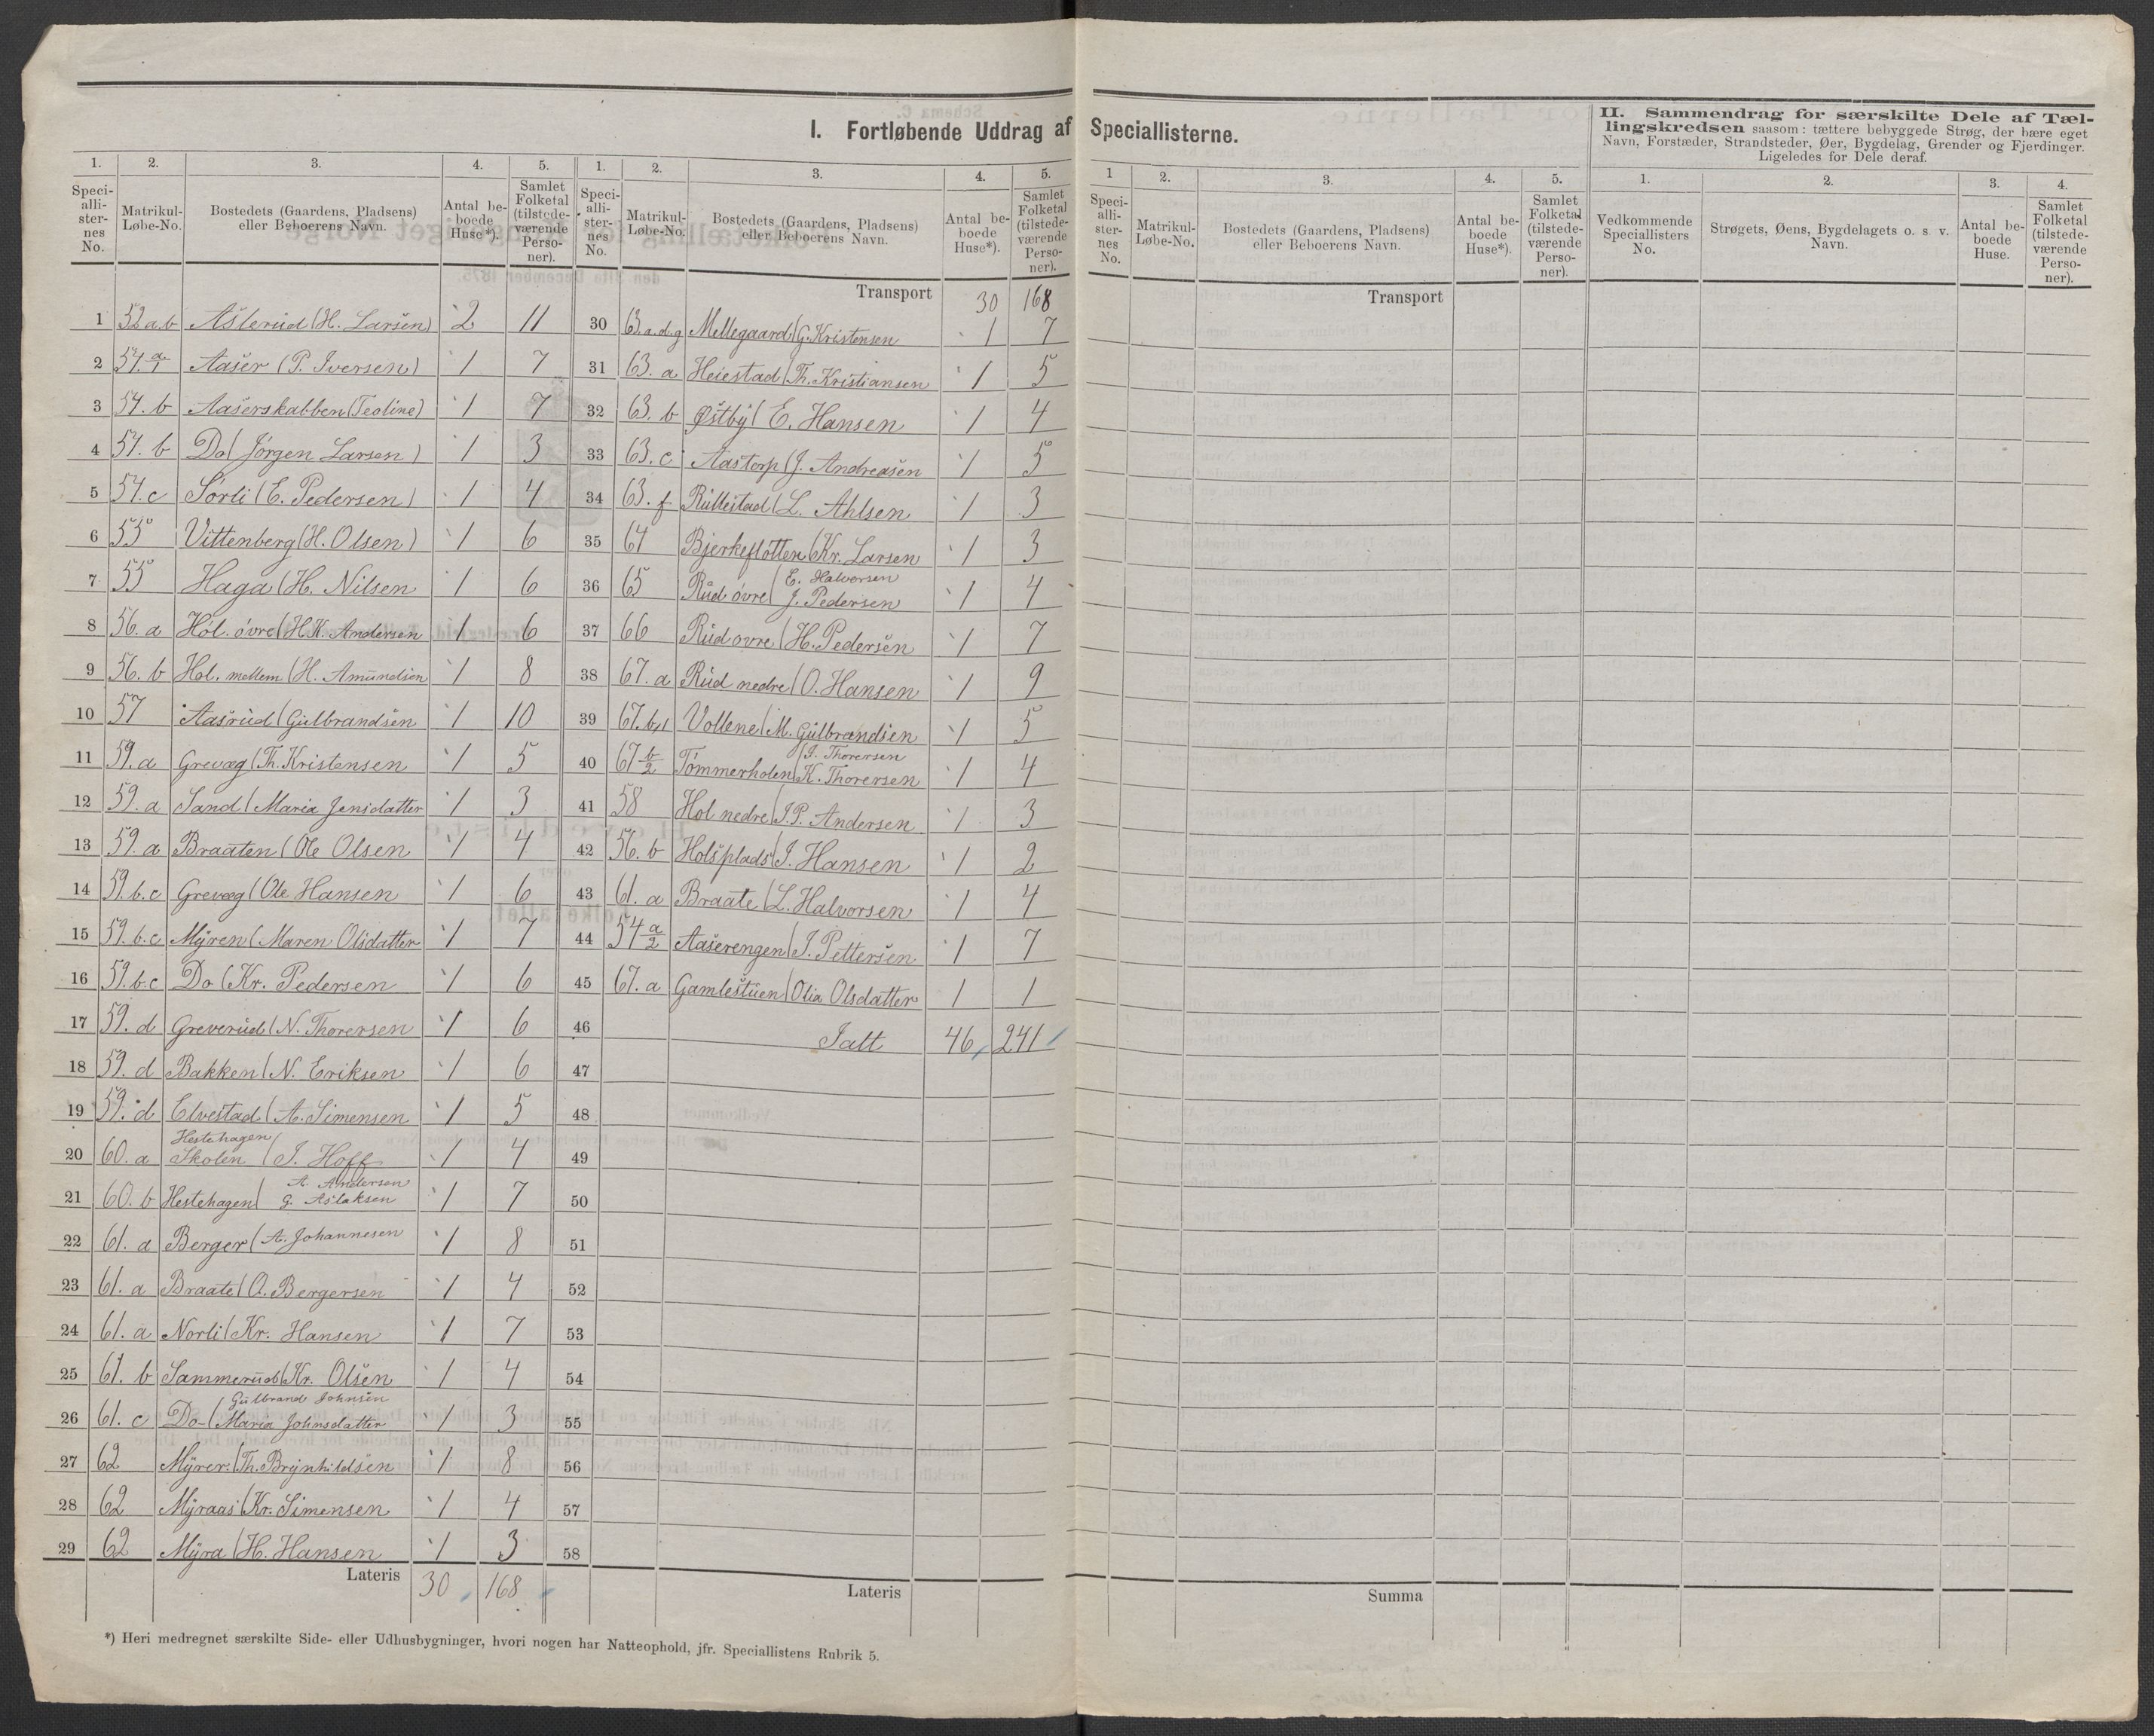 I. Fortløbende Uddrag af Speciallisterne.
II. Sammendrag for særskilte Dele af Tæl-
lingskredsen saasom: tættere bebyggede Strøg, der bære eget
Navn, Forstæder, Strandsteder, Øer, Bygdelag, Grender og Fjerdinger.
Ligeledes for Dele deraf.
1. 2. 3. 4. 5.
Speci-
alli-
ster-
nes
No.
Matrikul-
Løbe-No.
Bostedets (Gaardens, Pladsens)
eller Beboerens Navn.
Antal be-
boede
Huse*).
Samlet
Folketal
(tilstede-
værende
Perso-
ner).
1 52a.b Asterud (H. Larsen) 2 11
2 54.a/1 Aaser (P. Iversen) 1 7
3 54.b Aaserskabben (Teoline) 1 7
4 54.b Do (Jörgen Larsen) 1 3
5 54.c Sörli (E. Pedersen) 1 4
6 55 Vittenberg (H. Olsen) 1 6
7 55 Haga (H. Nilsen 1 6
8 56.a Höl. övre (H.K. Andersen 1 6
9 56.b Hol. mellem (H. Amundsen 1 8
10 57 Aasrud (Gulbrandsen 1 10
11 59.a Grevæg (Th. Kristensen 1 5
12 59.a Sand (Maria Jensdatter 1 3
13 59.a Braaten (Ole Olsen 1 4
14 59.b.c Grevæg (Ole Hansen 1 6
15 59.b.c Myren (Maren Olsdatter 1 7
16 59.b.c Do (Kr. Pedersen 1 6
17 59.d Greverud (N. Thorersen 1 6
18 59.d Bakken (N. Eriksen 1 6
19 59.d Elvestad (A. Simensen 1 5
Hestehagen
20 60.a Skolen (J. Hoff 1 4
A. Andersen
21 60.b Hestehagen ( G. Aslaksen 1 7
22 61.a Berger (A. Johannesen 1 8
23 61.a Braate (O. Bergersen 1 4
24 61.a Norli (Kr. Hansen 1 7
25 61.b Sammerud (Kr. Olsen 1 4
Gulbrand Johnsen
26 61.c Do- (Maria Johnsdatter 1 3
27 62 Myrer. (Th. Brynhildsen 1 8
28 62 Myraas (Kr. Simensen 1 4
29 62 Myra (H. Hansen 1 3
Lateris 30 168
1. 2. 3. 4. 5.
Speci-
alli-
ster-
nes
No.
Matrikul-
Løbe-No.
Bostedets (Gaardens, Pladsens)
eller Beboerens Navn.
Antal be-
boede
Huse*).
Samlet
Folketal
(tilstede-
værende
Perso-
ner).
Transport 30 168
30 63.a.d.g Mellegaard (G. Kristensen 1 7
31 63.a Heiestad (Th. Kristiansen 1 5
32 63.b Østby (E. Hansen 1 4
33 63.c Aastorp (J. Andreasen 1 5
34 63.f Rullestad (L. Ahlsen 1 3
35 64 Bjerkeflötten (Kr. Larsen 1 3
E. Halvorsen
36 65 Rud övre ( J. Pedersen 1 4
37 66 Rud ovre (H. Pedersen 1 7
38 67.a Rud nedre (O. Hansen 1 9
39 67.b,1 Vollene (M. Gulbrandsen 1 5
J. Thorersen
40 67 b/2 Tömmerholen (K. Thorersen 1 4
41 58 Hol nedre (J.P. Andersen 1 3
42 56.b Holsplads (J. Hansen 1 2
43 61.a Braate (L. Halvorsen 1 4
44 54 a/2 Aaserengen (J. Pettersen 1 7
45 67.a Gamlestuen (Olia Olsdatter 1 1
46 Ialt 46 241
47
48
49
50
51
52
53
54
55
56
57
58
Lateris
1 2. 3. 4. 5.
Speci-
alli-
ster-
nes
No.
Matrikul-
Løbe-No.
Bostedets (Gaardens, Pladsens)
eller Beboerens Navn.
Antal be-
boede
Huse*).
Samlet
Folketal
(tilstede-
værende
Perso-
ner).
Transport
Summa
1. 2. 3. 4.
Vedkommende
Speciallisters
No.
Strøgets, Øens, Bygdelagets o. s. v.
Navn.
Antal be-
boede
Huse.
Samlet
Folketal
(tilstede-
værende
Perso-
ner).
*) Heri medregnet særskilte Side- eller Udhusbygninger, hvori nogen har Natteophold, jfr. Speciallistens Rubrik 5.